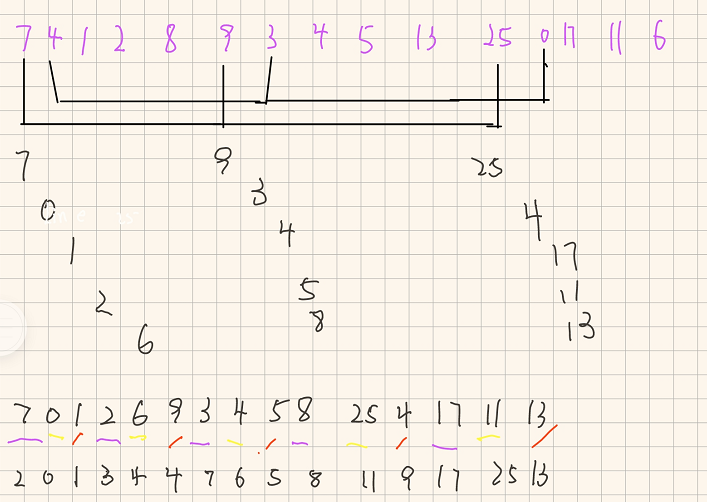 7 4 1 2 8 9 3 4 5 13 25 0 17 11 6
7 9 25
3
0 4
4
1 17
5 11
2
8 13
6
7 0 1 2 6 9 3 4 5 8 25 4 17 11 13
2 0 1 3 4 4 7 6 5 8 11 9 17 25 13